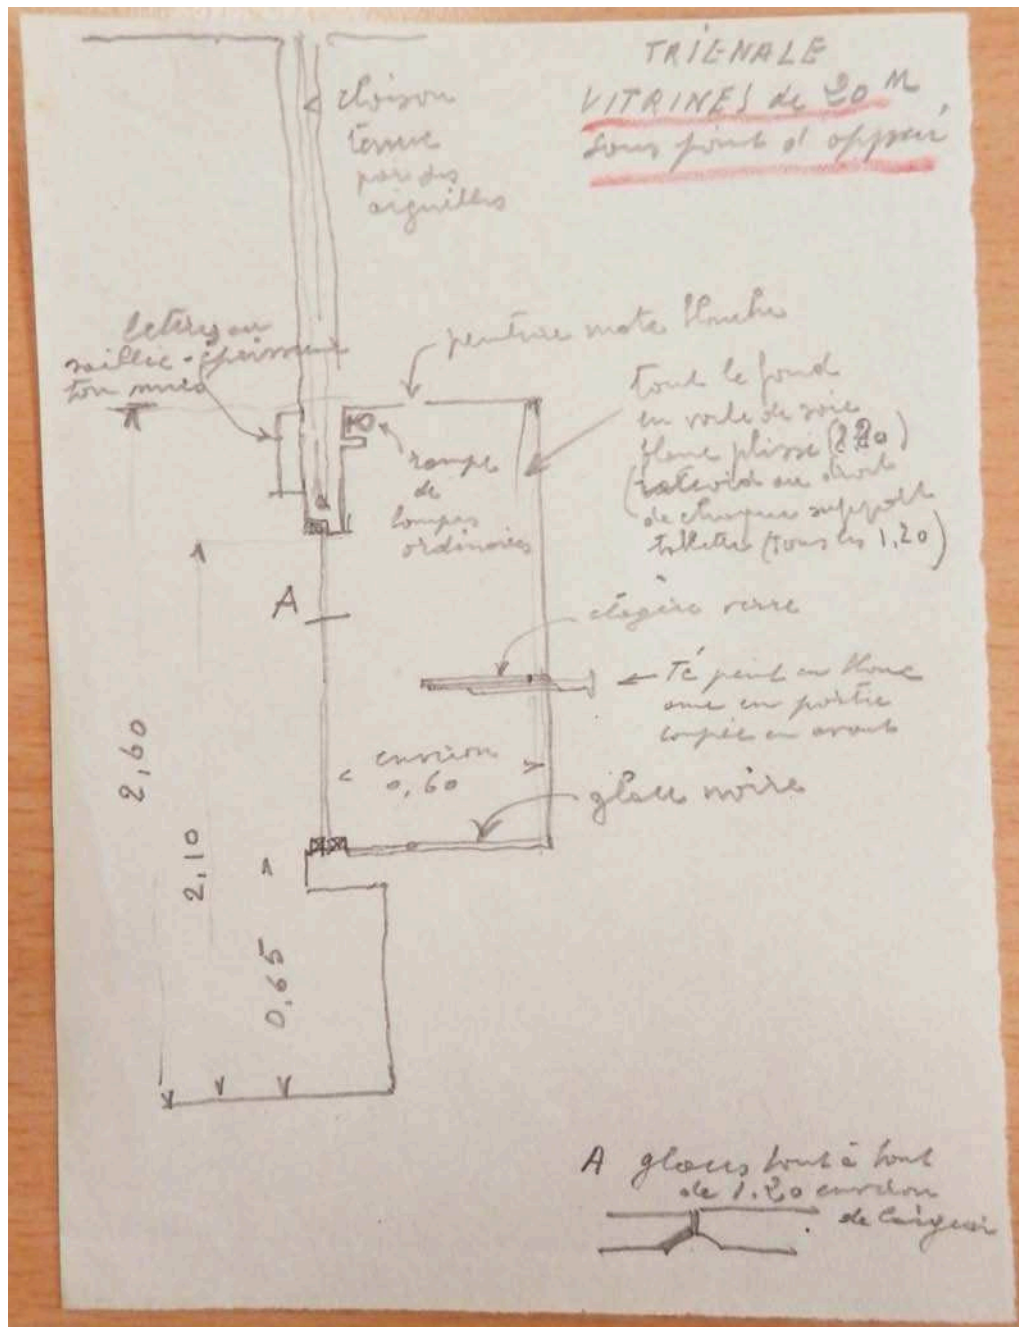 TRIENALE
VITRINES de 20 M
sans point d'appui
cloison
tenue
par des
aiguilles
lettres en
saillie - épaisseur
peinture mate blanche
tout le fond
en voile de soie
blanc plissé (220)
de chaque support
(tous les 1,20)
rampe
de
lampes
ordinaires
A
étagère verre
Té peint en blanc
ame en partie
coupée en avant
environ
0,60
glace noire
2,60
2,10
0,65
A glaces bout à bout
de 1.20 environ
de largeur